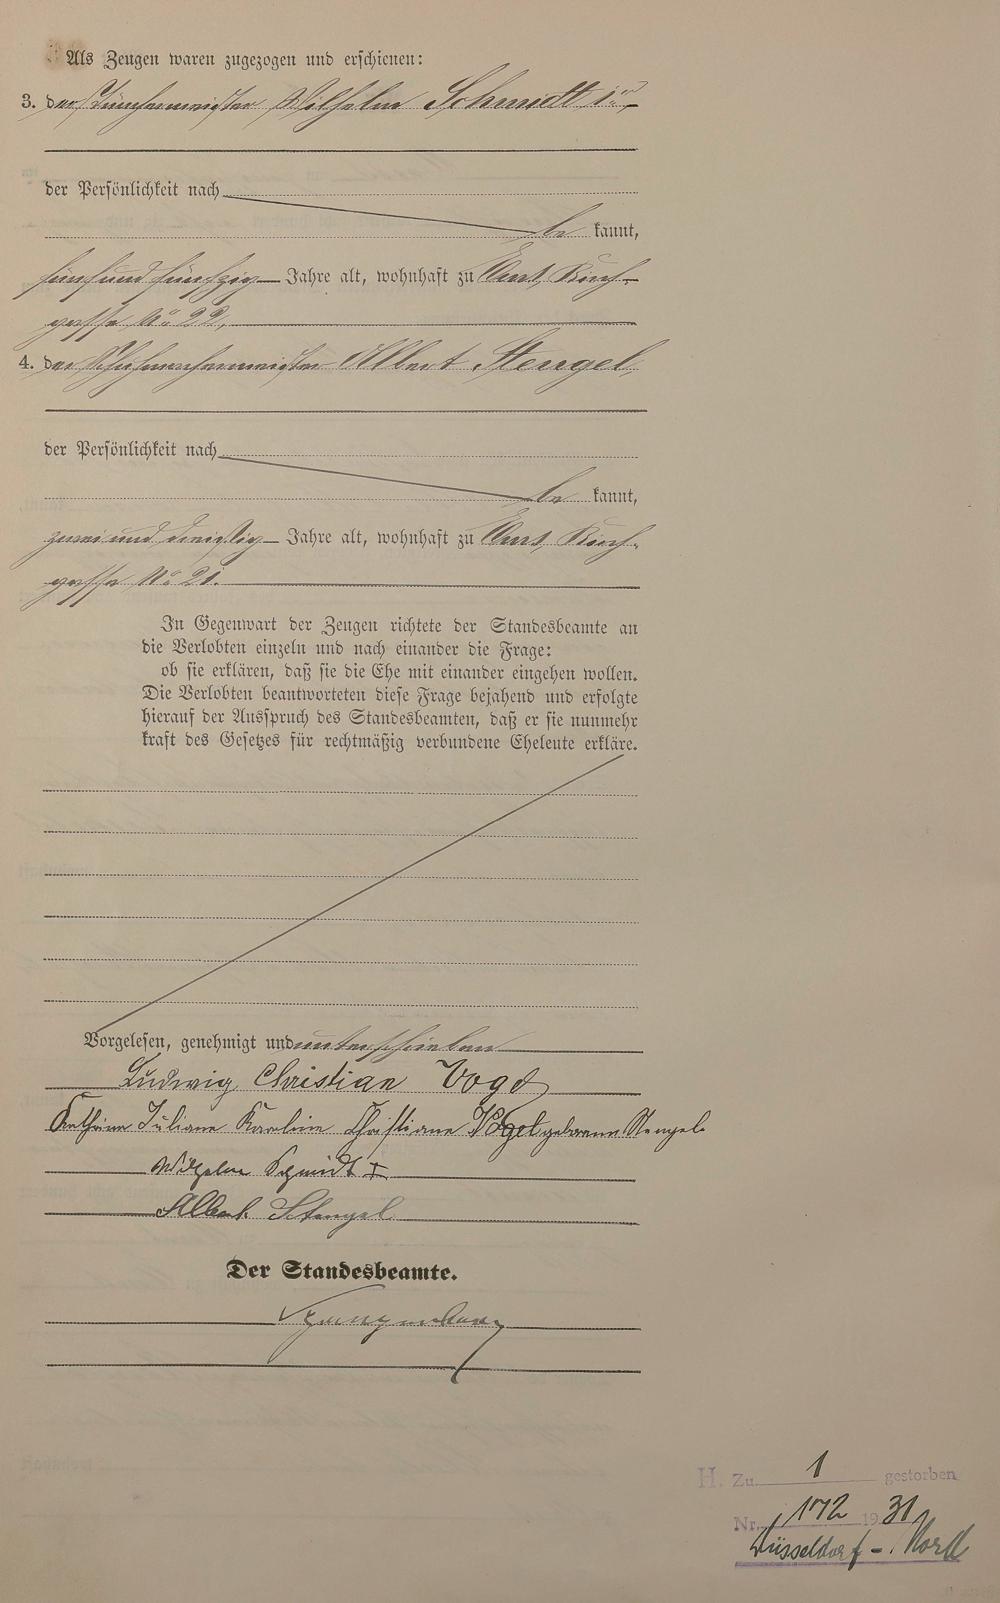 Als Zeugen waren zugezogen und erschienen:
3. der Tünchermeister Wilhelm Schmidt
der Persönlichkeit nach
be kannt,
fünfundfünfzig Jahre alt, wohnhaft zu Ems, Kirch-
gasse No 22,
4. der Schuhmachermeister Albert Stengel,
der Persönlichkeit nach
be kannt,
zweiunddreißig Jahre alt, wohnhaft zu Ems, Kirch-
gasse No 21.
In Gegenwart der Zeugen richtete der Standesbeamte an
die Verlobten einzeln und nach einander die Frage:
ob sie erklären, daß sie die Ehe mit einander eingehen wollen.
Die Verlobten beantworteten diese Frage bejahend und erfolgte
hierauf der Ausspruch des Standesbeamten, daß er sie nunmehr
kraft des Gesetzes für rechtmäßig verbundene Eheleute erkläre.
Vorgelesen, genehmigt und unterschrieben
Ludwig Christian Vogel
Kathrine Juliane Karoline Christiane Vogel geborene Stengel
Wilhelm Schmidt I
Albert Stengel
Der Standesbeamte.
H. Zu 1 gestorben
Nr. 172 1931
Düsseldorf-Nord